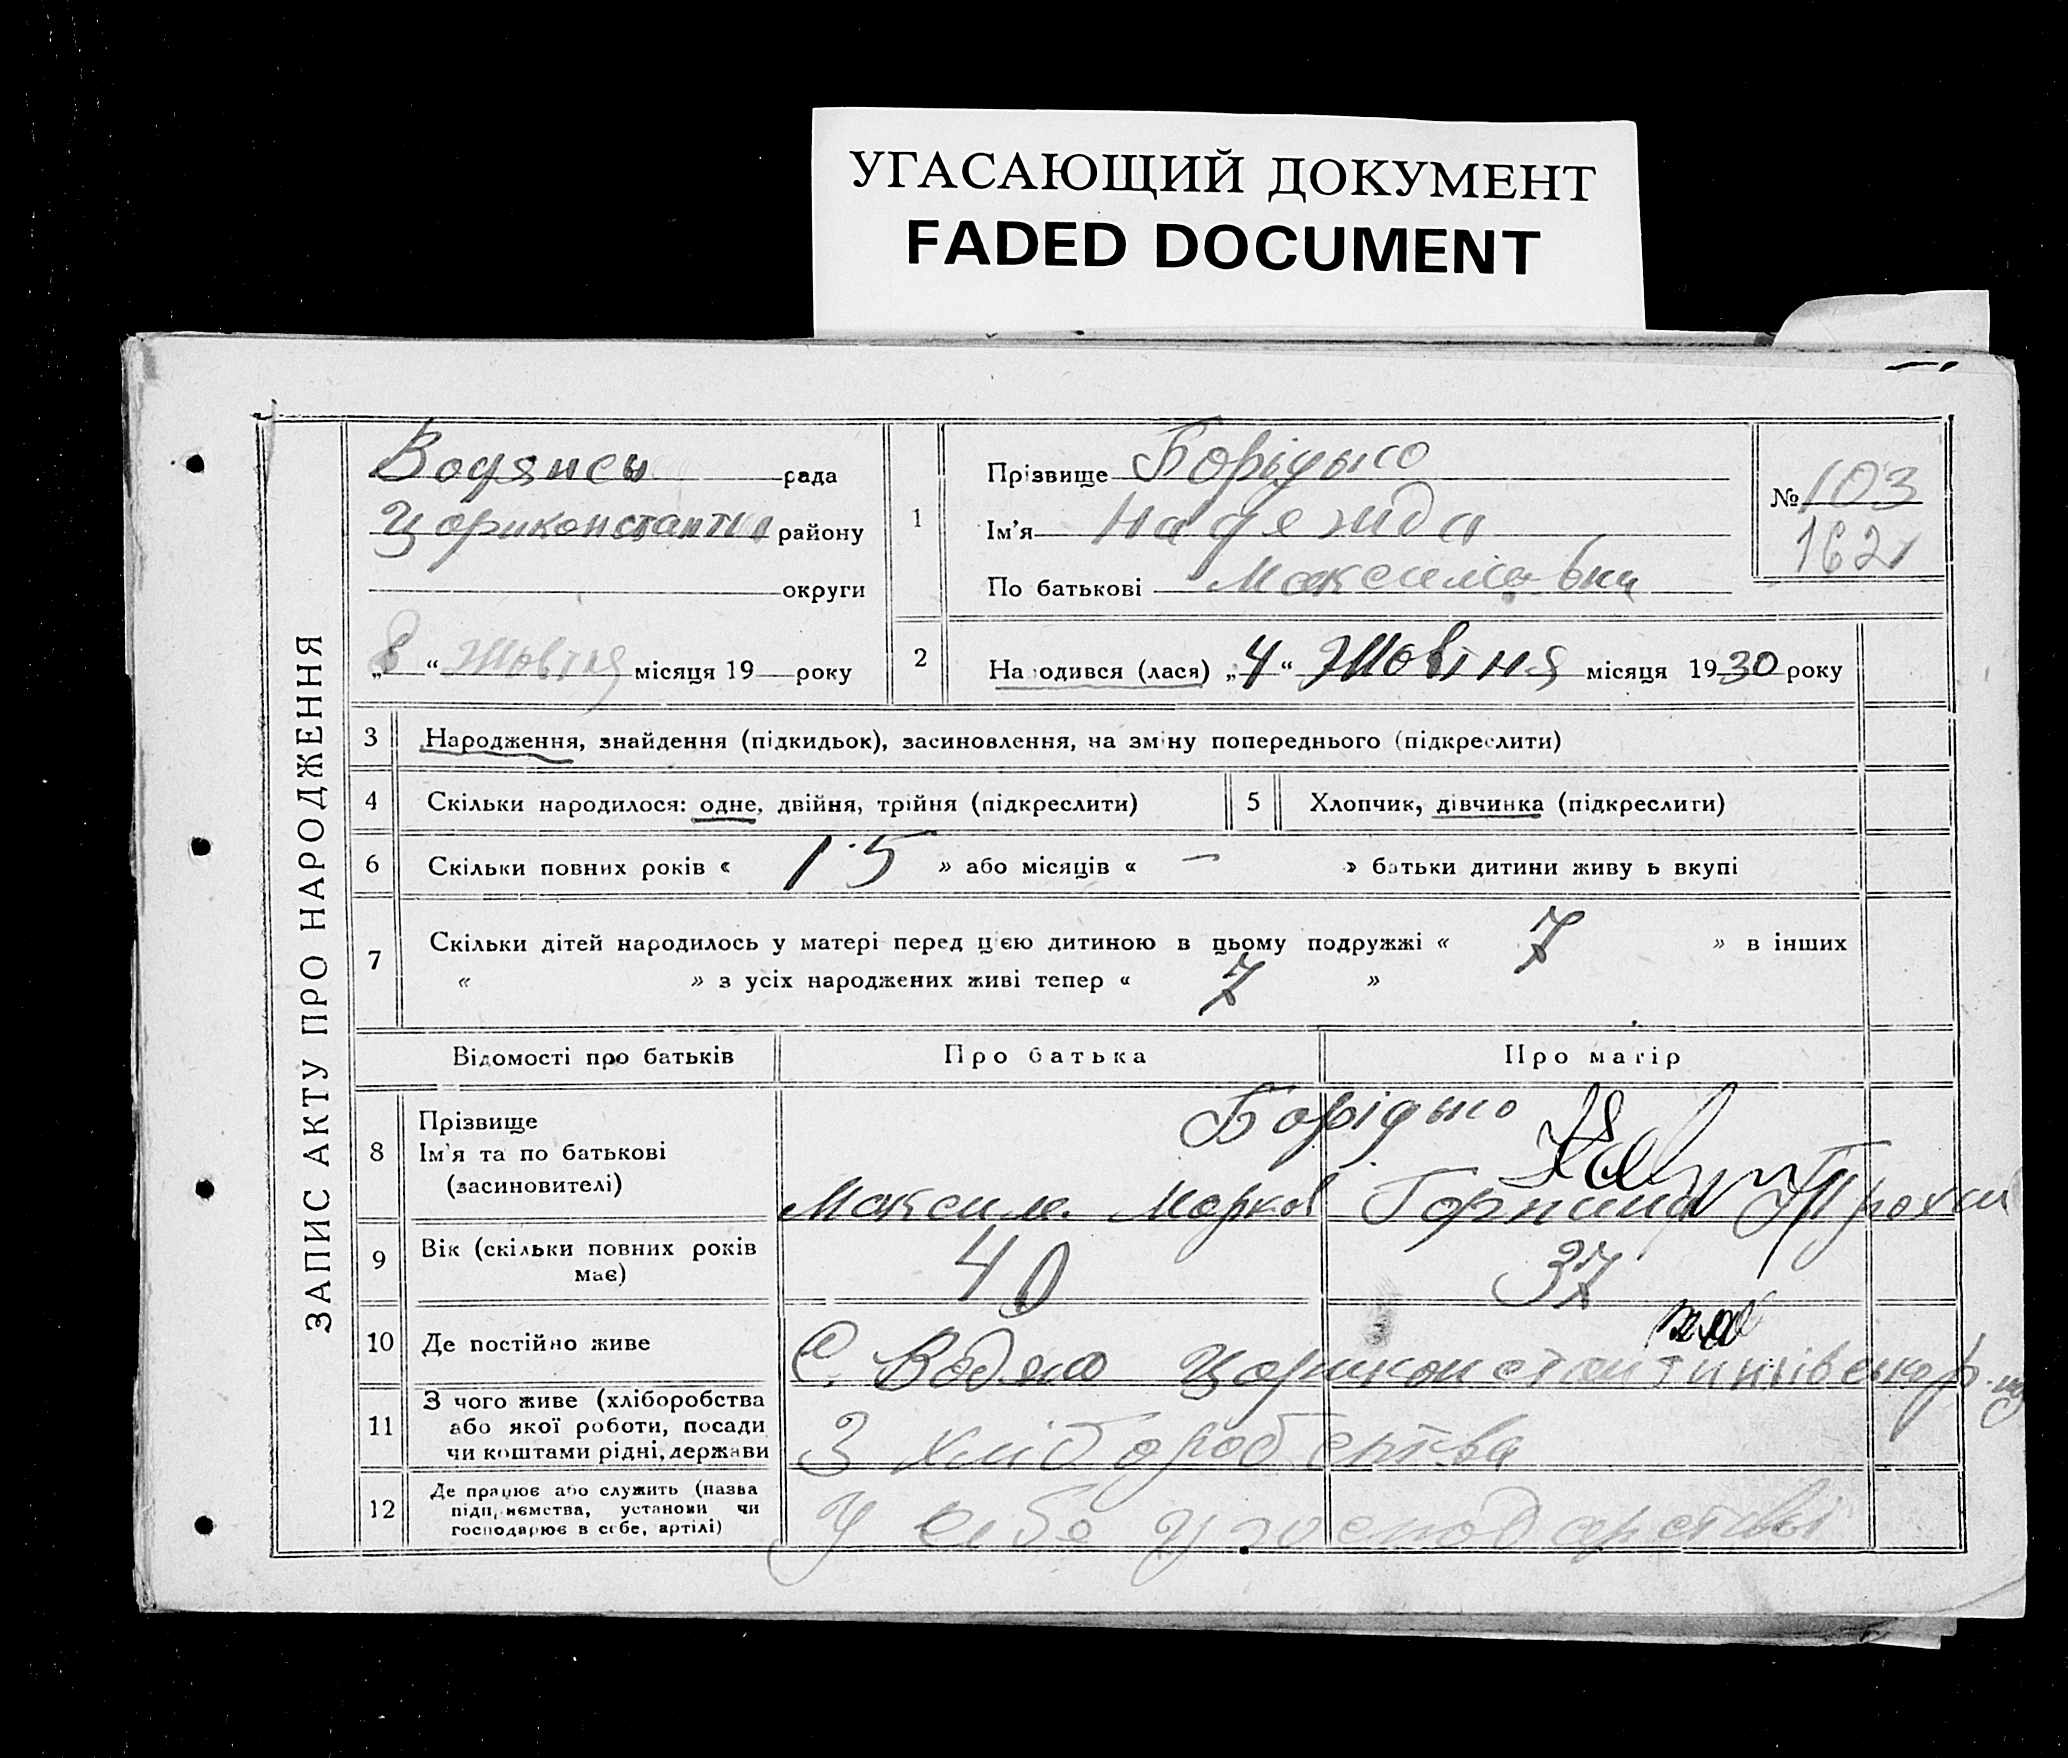 УГАСАЮЩИЙ ДОКУМЕНТ
FADED DOCUMENT
ЗАПИС АКТУ ПРО НАРОДЖЕННЯ
Водянсы рада
Цариконстанти району
округи
„8“ Жовтня місяця 19 року
1
Прізвище
Ім'я Надежда
По батькові Максимовна
№ 103
162
2
Народився (лася) „4“ Жовтня місяця 1930 року
3 Народження, знайдення (підкидьок), засиновлення, на зміну попереднього (підкреслити)
4 Скільки народилося: одне, двійня, трійня (підкреслити)
5 Хлопчик, дівчинка (підкреслити)
6 Скільки повних років « 15 » або місяців « — » батьки дитини живуть вкупі
7 Скільки дітей народилось у матері перед цією дитиною в цьому подружжі « 7 » в інших
« » з усіх народжених живі тепер « 7 »
Відомості про батьків Про батька Про матір
8 Прізвище
Ім'я та по батькові
(засновителі)
Максим Марков Горпина Трохим
9 Вік (скільки повних років
має)
40 37
10 Де постійно живе С. Водяно Цариконстантинівськ р.
11 З чого живе (хліборобства
або якої роботи, посади
чи коштами рідні, держави
З хліборобства
12 Де працює або служить (назва
підприємства, установи чи
господарює в себе, артілі)
У себе у господарстві